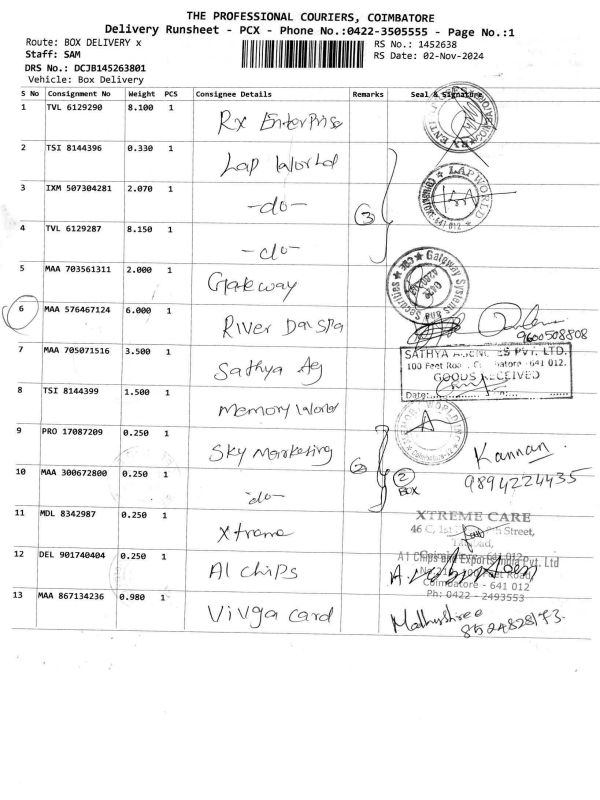 THE PROFESSIONAL COURIERS, COIMBATORE
Delivery Runsheet - PCX - Phone No.:0422-3505555 - Page No.:1
Route: BOX DELIVERY x
RS No.: 1452638
Staff: SAM
RS Date: 02-Nov-2024
DRS No.: DCJB145263801
Vehicle: Box Delivery
S No Consignment No Weight PCS Consignee Details Remarks Seal & Signature
1 TVL 6129290 8.100 1 Rx Enterprise
2 TSI 8144396 0.330 1 Lap World
3 IXM 507304281 2.070 1 -do- 3 LAP WORLD
4 TVL 6129287 8.150 1 -do-
5 MAA 703561311 2.000 1 Gateway Gateway Systems
6 MAA 576467124 6.000 1 River Dal Spa 9600508808
7 MAA 705071516 3.500 1 Sathya Ag
SATHYA AGENCIES PVT. LTD.
100 Feet Road, Coimbatore - 641 012.
GOODS RECEIVED
Date:
8 TSI 8144399 1.500 1 Memory World
9 PRO 17087209 0.250 1 Sky Marketing Kannan
10 MAA 300672800 0.250 1 -do- 2 BOX 9894224435
11 MDL 8342987 0.250 1 Xtreme
XTREME CARE
12 DEL 901740404 0.250 1 A1 Chips
A1 Chips and Exports India Pvt. Ltd
Coimbatore - 641 012
Ph: 0422 - 2493553
13 MAA 867134236 0.980 1 Vivga Card Madhushree
8524828173